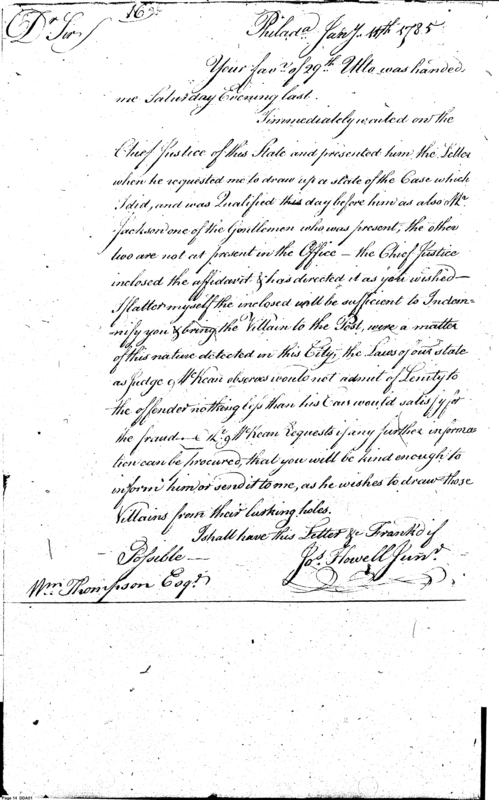 16
Philada. Jany. 11th 1785
Dr Sir
Your favr. of 29th Ulto was handed
me Saturday Evening last.
I immediately waited on the
Chief Justice of this State and presented him the Letter
when he requested me to draw up a state of the Case which
I did, and was Qualified this day before him as also Mr
Jackson one of the Gentlemen who was present, the other
two are not at present in the Office — the Chief Justice
inclosed the affidavit & has directed it as you wished —
I flatter myself the inclosed will be sufficient to Indem=
nify you & bring the Villain to the Post, were a matter
of this native detected in this City, the Laws of our state
as Judge McKean observes would not admit of Lenity to
the offender nothing less than his Ears would satisfy for
the fraud — McKean Requests if any further informa=
tion can be procured, that you will be kind enough to
inform him or send it to me, as he wishes to draw those
Villains from their lurking holes.
I shall have this Letter &c Frank'd if
Possible —
Jos. Howell Junr.
Wm. Thompson Esqr.
Page 14 DDA01